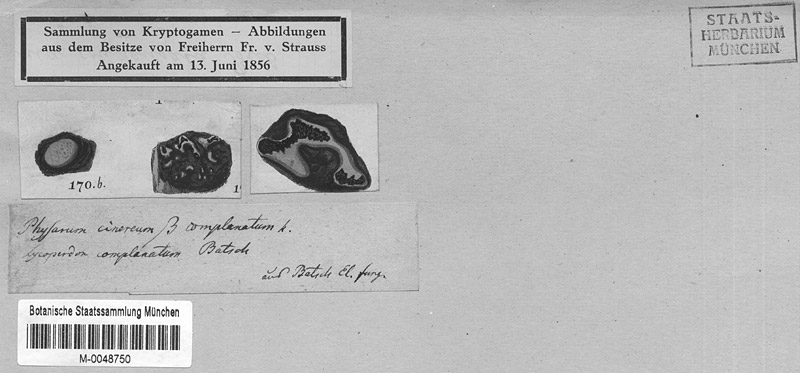 Sammlung von Kryptogamen — Abbildungen
aus dem Besitze von Freiherrn Fr. v. Strauss
Angekauft am 13. Juni 1856
STAATS-
HERBARIUM
MÜNCHEN
170.b.
Physarum cinereum β complanatum
Lycoperdon complanatum Batsch
aus Batsch El. fung.
Botanische Staatssammlung München
M-0048750